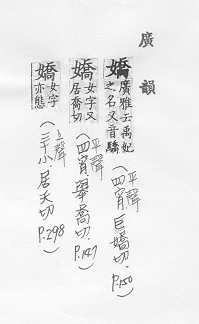 廣韻
嬌 廣雅云禹妃之名又音驕 (平聲 四宵 巨嬌切. P.150)
嬌 女字又居喬切 (平聲 四宵 舉喬切. P.147)
嬌 女字亦態 (上聲 三十小 居夭切 P.298)